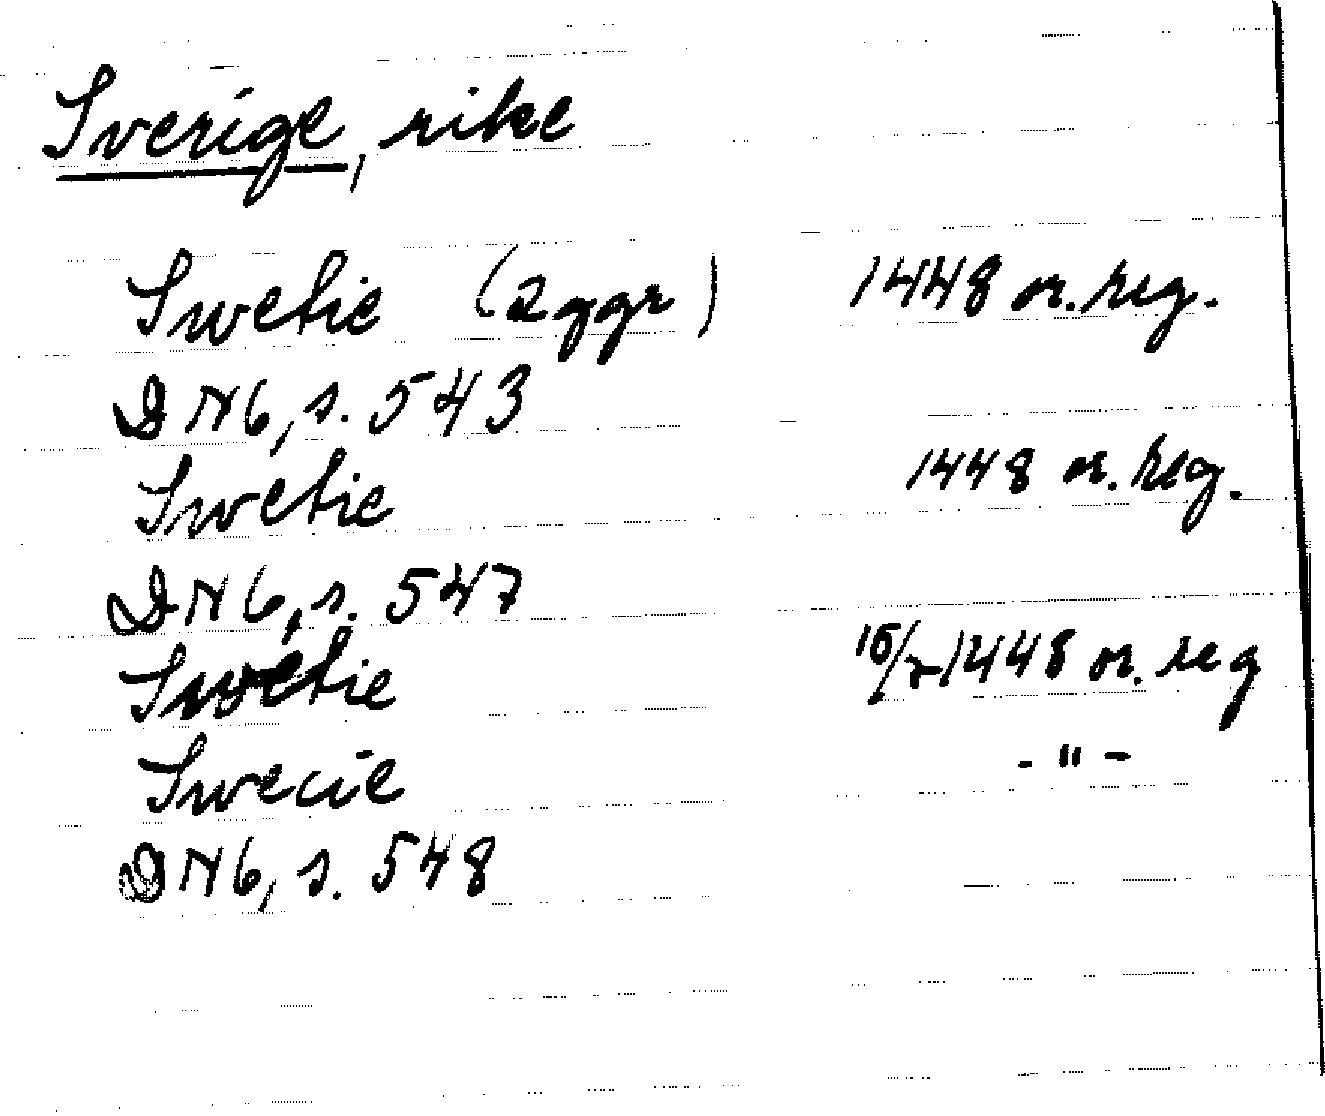 Sverige, rike
Swetie (2 ggr) 1448 or. reg.
DN6, s. 543
Swetie 1448 or. reg.
DN6, s. 547
Swetie 1448 or. reg
Swecie - " -
DN6, s. 548